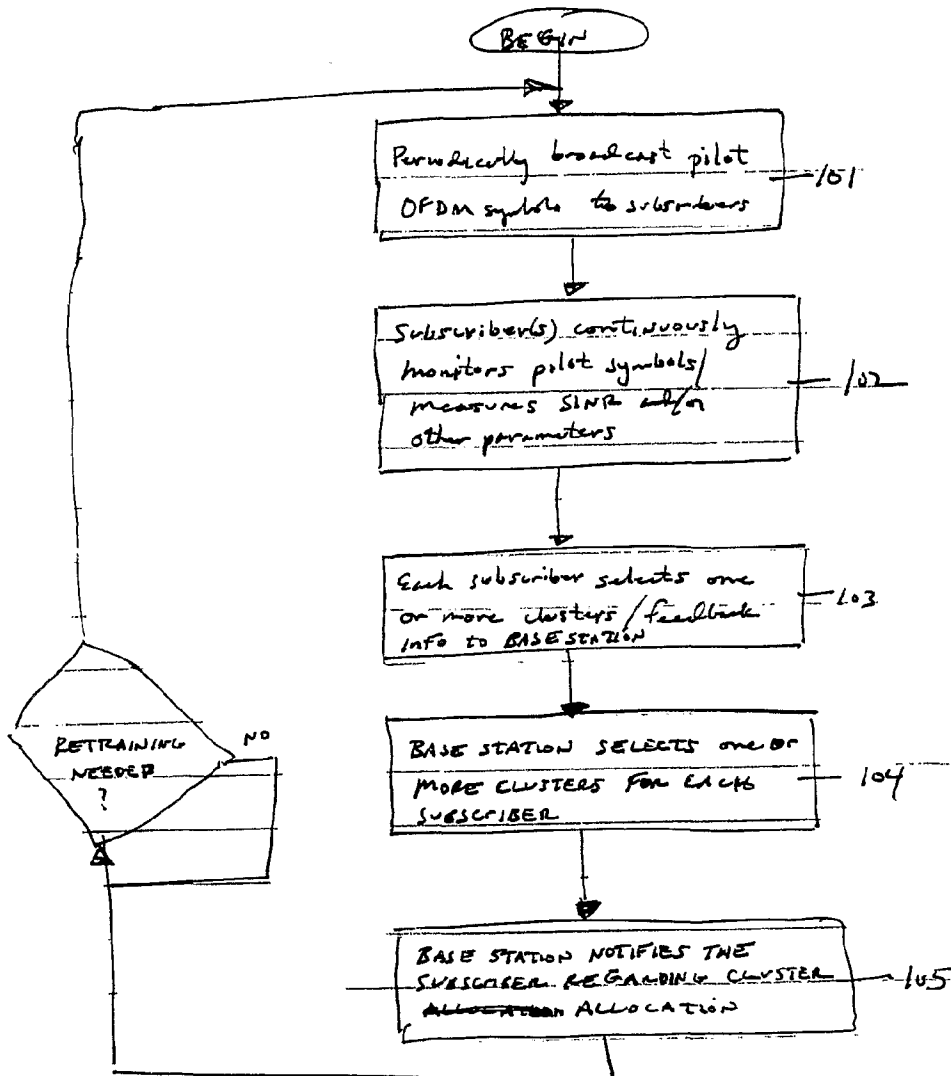 BEGIN
Periodically broadcast pilot
OFDM symbols to subscribers
101
Subscriber(s) continuously
monitors pilot symbols/
measures SINR and/or
other parameters
102
Each subscriber selects one
or more clusters/feedback
info to BASE STATION
103
BASE STATION SELECTS one or
MORE CLUSTERS FOR EACH
SUBSCRIBER
104
BASE STATION NOTIFIES THE
SUBSCRIBER REGARDING CLUSTER
ALLOCATION ALLOCATION
105
RETRAINING
NEEDED
?
NO